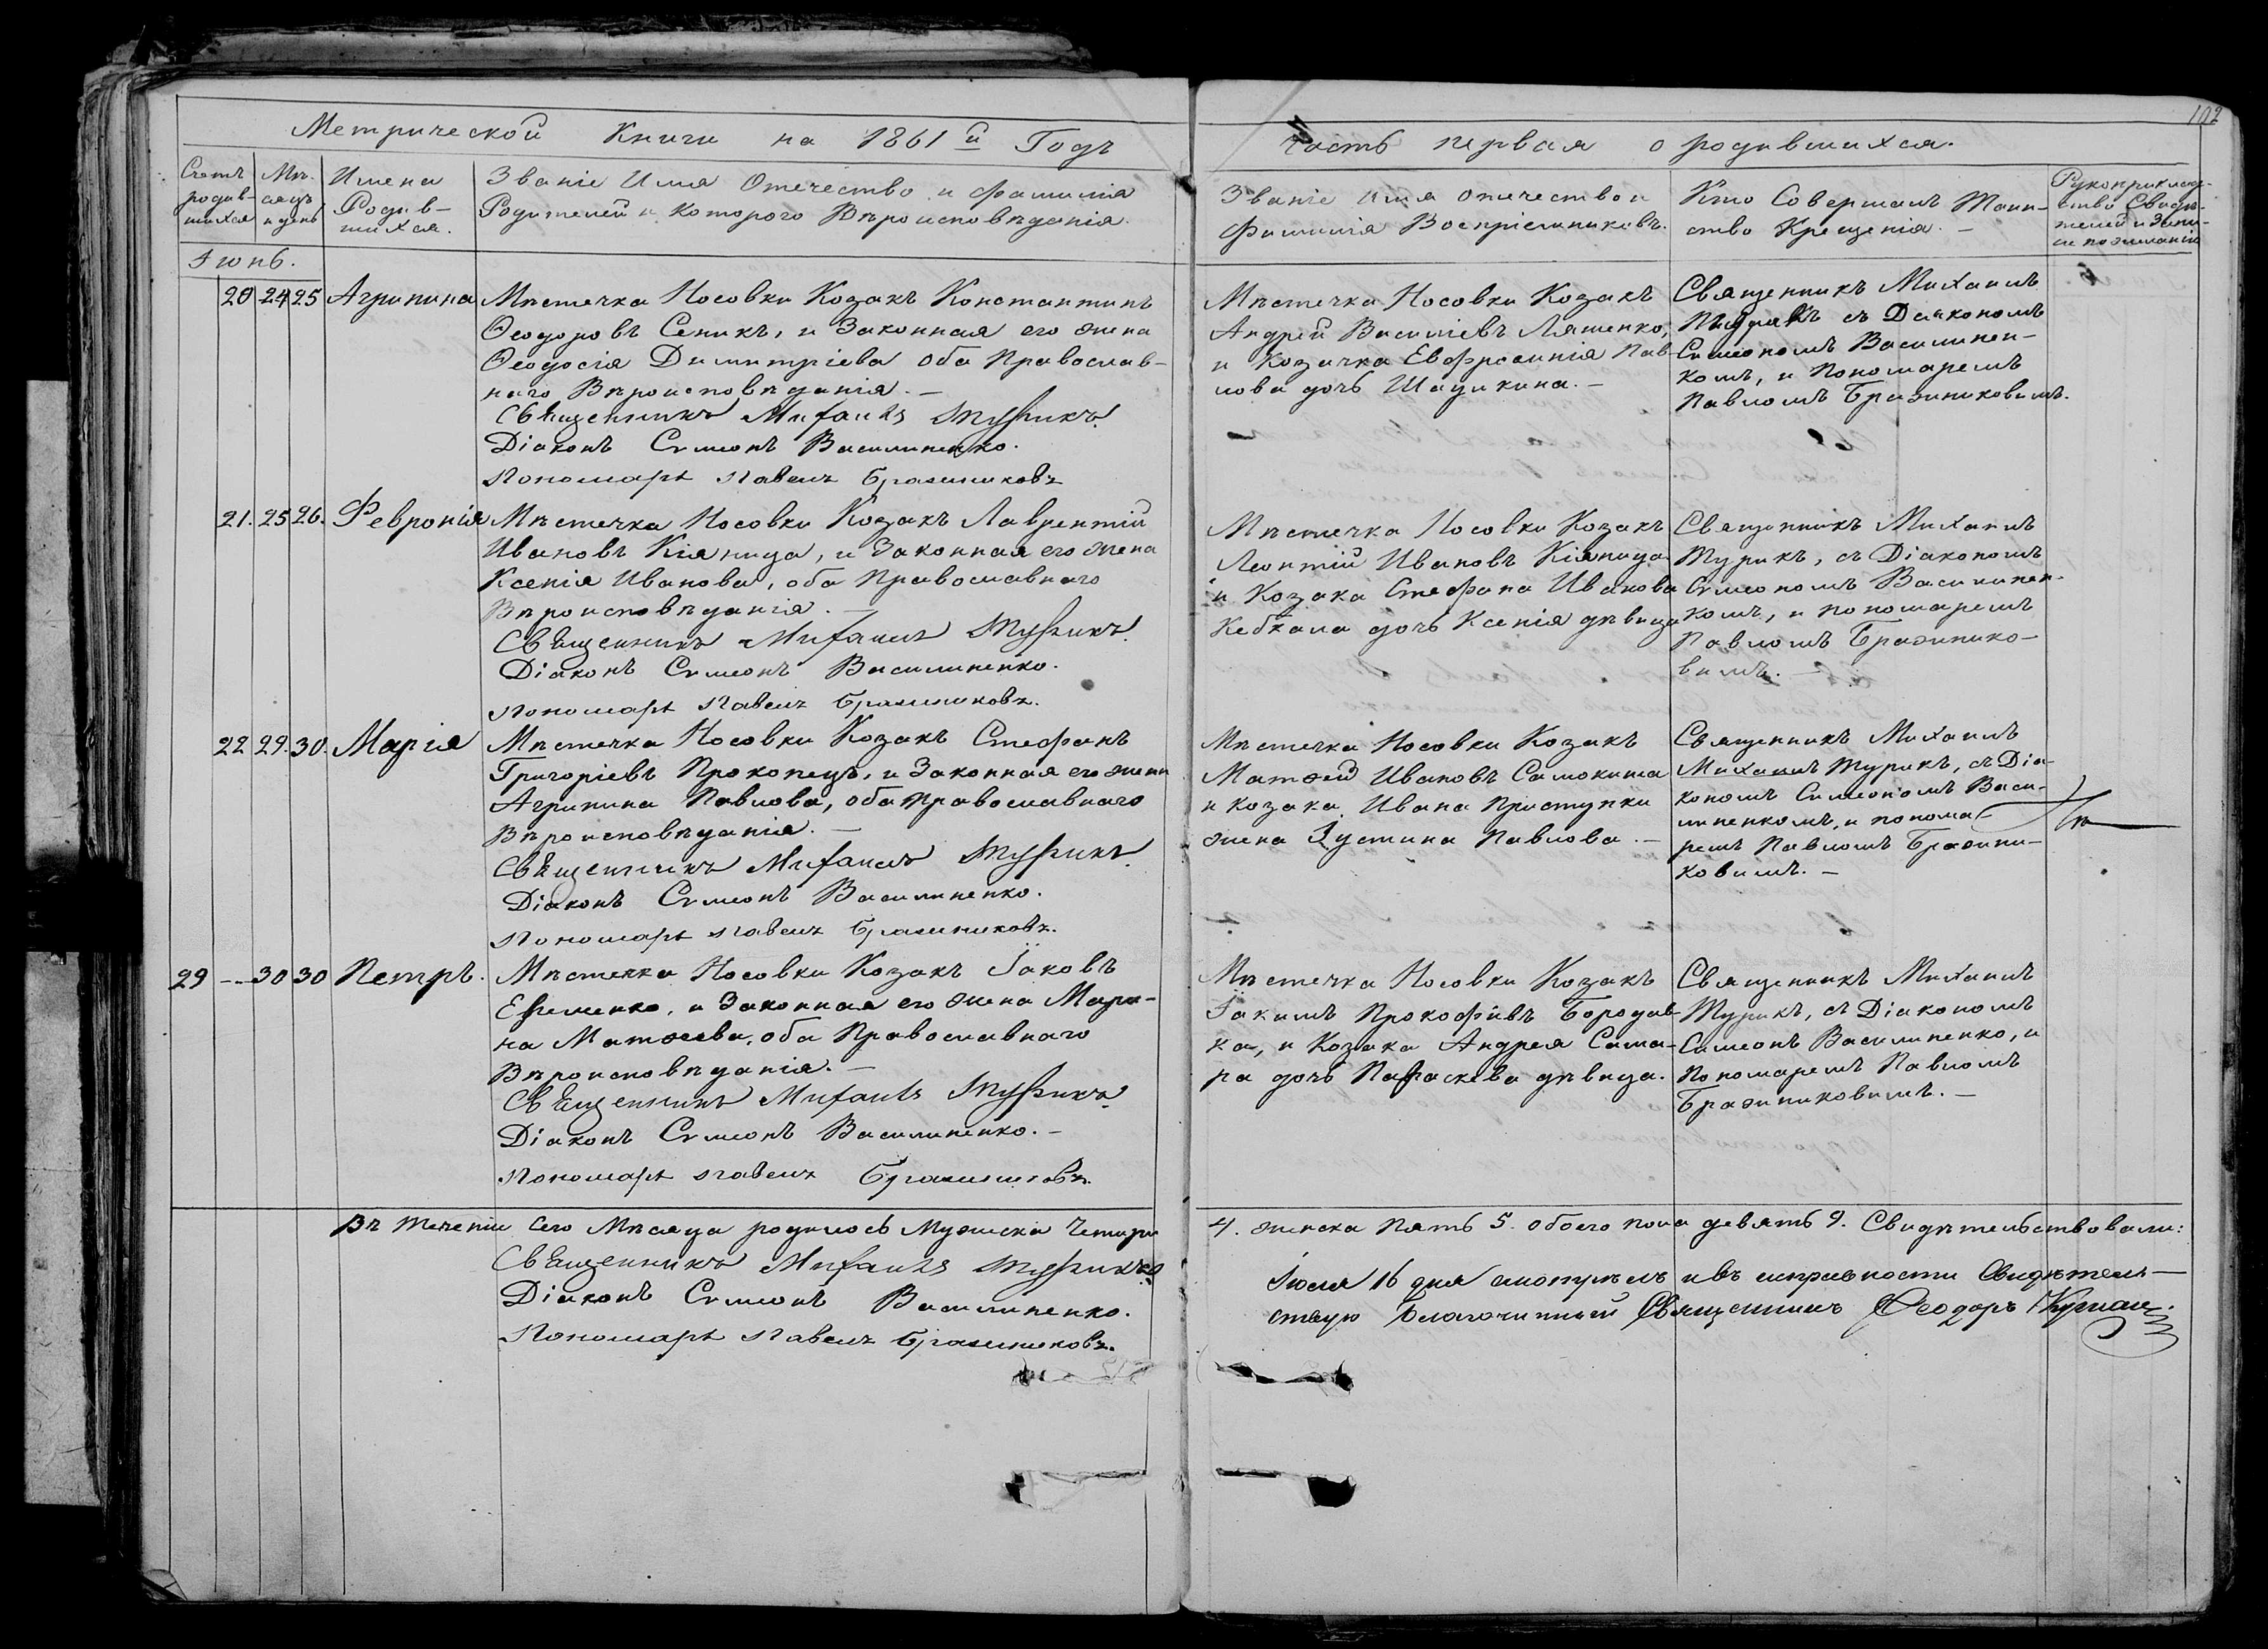 102
Метрической Книги на 1861й Годъ
Часть первая о родившихся.
Счетъ родив-шихся
Мѣ-сяцъ и день
Имена Родив-шихся.
Званіе Имя Отечество и фамилія
Родителей и которого Вѣроисповѣданія.
Званіе Имя Отечество и
Фамилія Воспріемниковъ.
Кто Совершалъ Таин-
ство Крещенія. —
Рукоприклад-
ство Свидѣ-
телей и Запи-
си по желанію
Іюнь.
20 24 25 Агрипина
Мѣстечка Носовки Козакъ Константинъ
Ѳеодоровъ Сеникъ, и Законная его жена
Ѳеодосія Димитріева оба Православ-
наго Вѣроисповѣданія. —
Священникъ Михаилъ Турикъ.
Діаконъ Сѵмеонъ Василипенко.
Пономарь Павелъ Бражниковъ
Мѣстечка Носовки Козакъ
Андрей Василіевъ Ляшенко,
и Козачка Евфросинія Пав-
лова дочь Шадикина. —
Священникъ Михаилъ
съ Діакономъ
Сѵмеономъ Василипен-
комъ, и Пономаремъ
Павломъ Бражниковимъ.
21. 25 26. Февронія
Мѣстечка Носовки Козакъ Лаврентій
Ивановъ Кіяница, и Законная его жена
Ксенія Иванова, оба Православнаго
Вѣроисповѣданія. —
Священникъ Михаилъ Турикъ.
Діаконъ Сѵмеонъ Василипенко.
Пономарь Павелъ Бражниковъ.
Мѣстечка Носовки Козакъ
Леонтій Ивановъ Кіяница
и Козака Стефана Иванова
Кебкала дочь Ксенія дѣвица
Священникъ Михаилъ
Турикъ, съ Діакономъ
Сѵмеономъ Василипен-
комъ, и пономаремъ
Павломъ Бражнико-
вимъ. —
22 29. 30. Марія
Мѣстечка Носовки Козакъ Стефанъ
Григоріевъ Прокопецъ, и Законная его жена
Агрипина Павлова, оба Православнаго
Вѣроисповѣданія. —
Священникъ Михаилъ Турикъ.
Діаконъ Сѵмеонъ Василипенко.
Пономарь Павелъ Бражниковъ.
Мѣстечка Носовки Козакъ
Матвей Ивановъ Самокиша
и козака Ивана Приступки
жена Іустина Павлова. —
Священникъ Михаилъ
Михаилъ Турикъ, съ Діа-
кономъ Симеономъ Васи-
липенкомъ, и понома-
ремъ Павломъ Бражни-
ковимъ. —
29 -- 30 30 Петръ.
Мѣстечка Носовки Козакъ Іаковъ
Ефименко, и Законная его жена Мари-
на Матвеева, оба Православнаго
Вѣроисповѣданія. —
Священникъ Михаилъ Турикъ.
Діаконъ Сѵмеонъ Василипенко. —
Пономарь Павелъ Бражниковъ.
Мѣстечка Носовки Козакъ
Іакимъ Прокофіивъ Бородав-
ка, и Козака Андрея Сама-
ра дочь Параскева дѣвица.
Священникъ Михаилъ
Турикъ, съ Діакономъ
Симеонъ Василипенко, и
Пономаремъ Павломъ
Бражниковимъ. —
Въ теченіи сего Мѣсяца родилось Мужска Четыри
4. женска Пять 5. обоего пола девять 9. Свидѣтельствовали:
Священникъ Михаилъ Турикъ
Діаконъ Сѵмеонъ Василипенко.
Пономарь Павелъ Бражниковъ.
Іюля 16 дня смотрѣлъ и въ исправности Свидѣтель-
ствую Благочинный Священникъ Ѳеодоръ